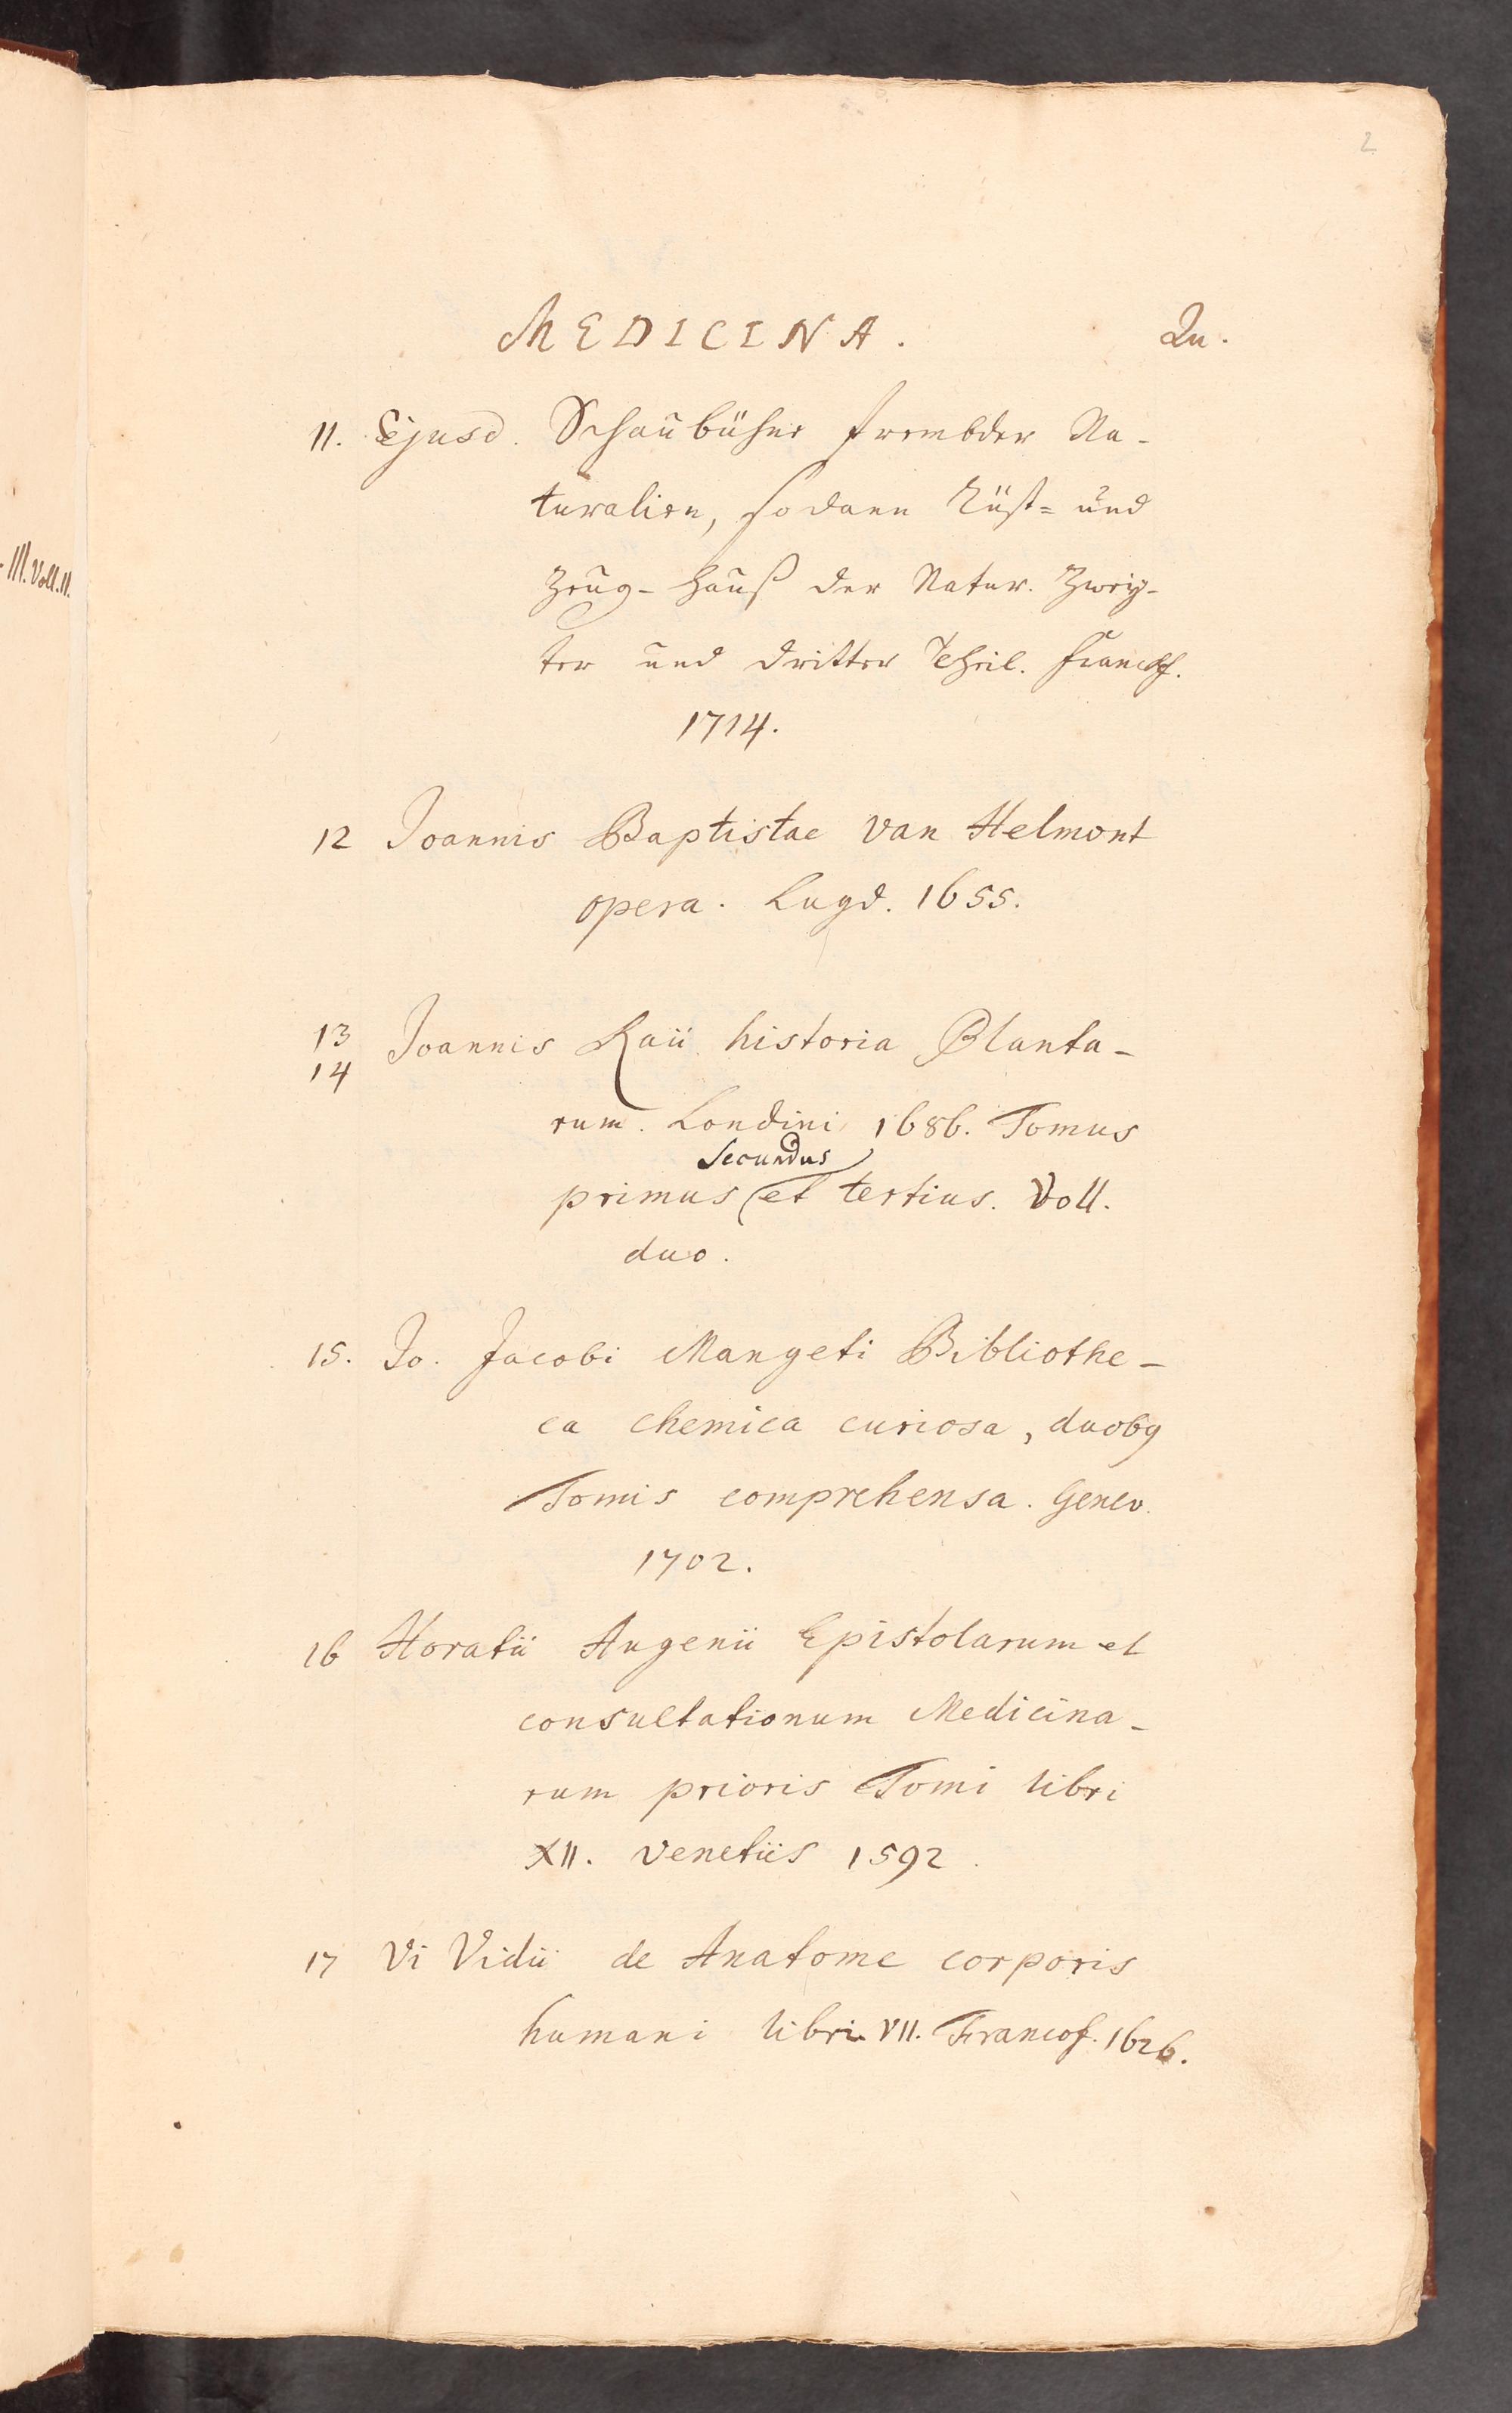 2
MEDICINA. Qu.
- III. Voll. II.
11. Ejusd. Schaubühne frembder Na-
turalien, so dann Rüst= und
Zeug- Hauß der Natur. Zwey-
ter und dritter Theil. Franckf.
1714.
12 Joannis Baptistae van Helmont
opera. Lugd. 1655.
13 Joannis Raii historia Planta-
14
rum. Londini 1686. Tomus
secundus
primus (et tertius. Voll.
duo.
15. Jo. Jacobi Mangeti Bibliothe-
ca chemica curiosa, duobq
Tomis comprehensa. Genev.
1702.
16 Horatii Augenii Epistolarum et
consultationum Medicina-
rum prioris Tomi libri
XII. Venetiis 1592.
17 Vi Vidii de Anatome corporis
humani libri VII. Francof. 1626.